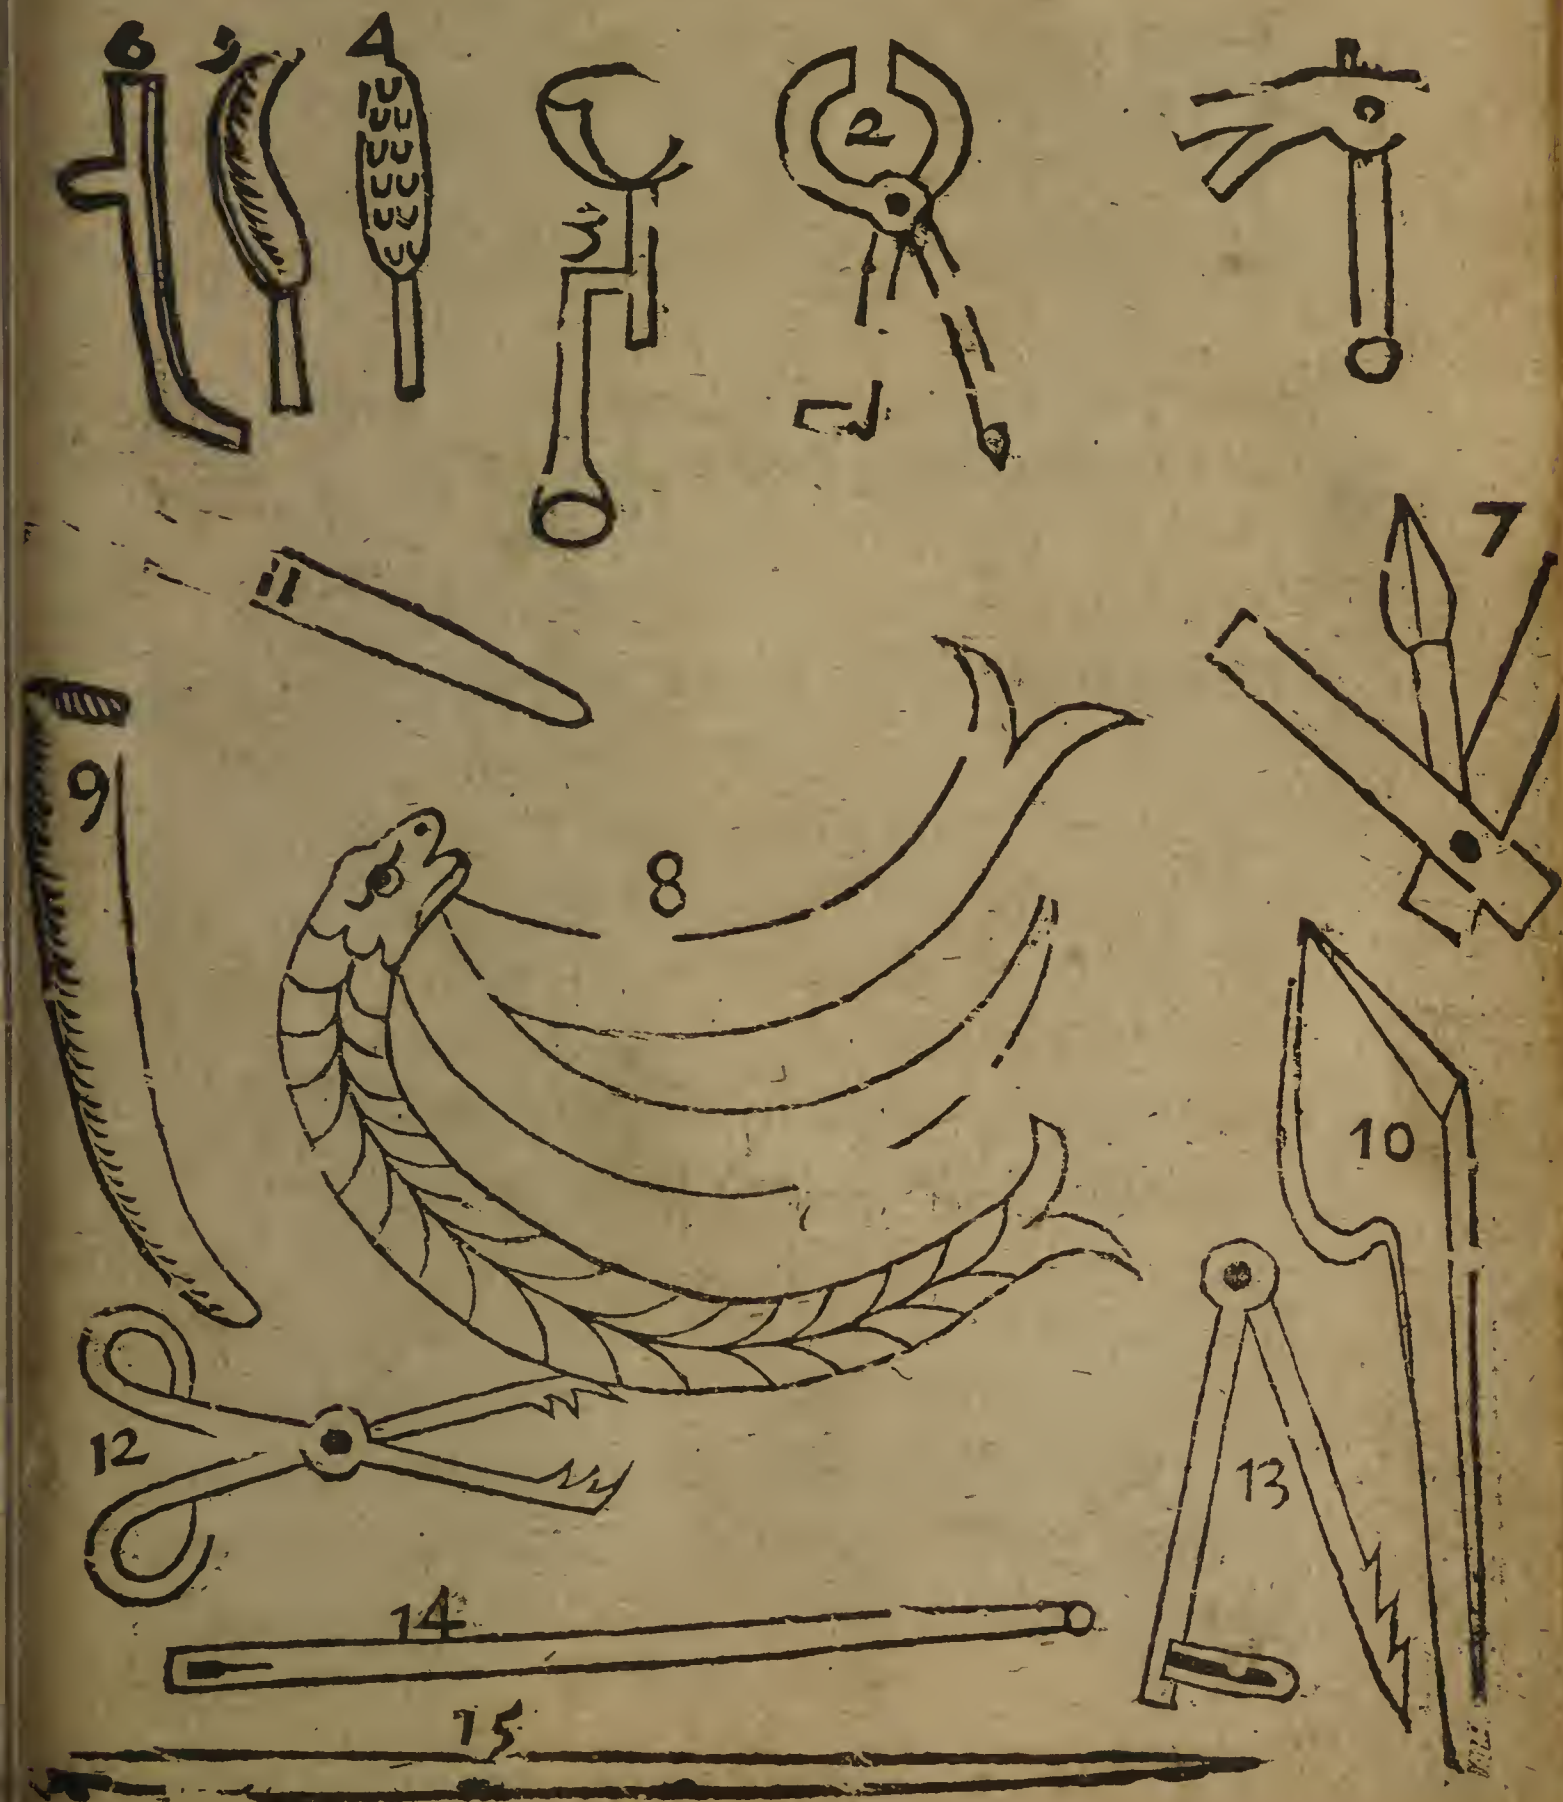 6 5 4
3
2
7
11
9
8
10
12
13
14
15